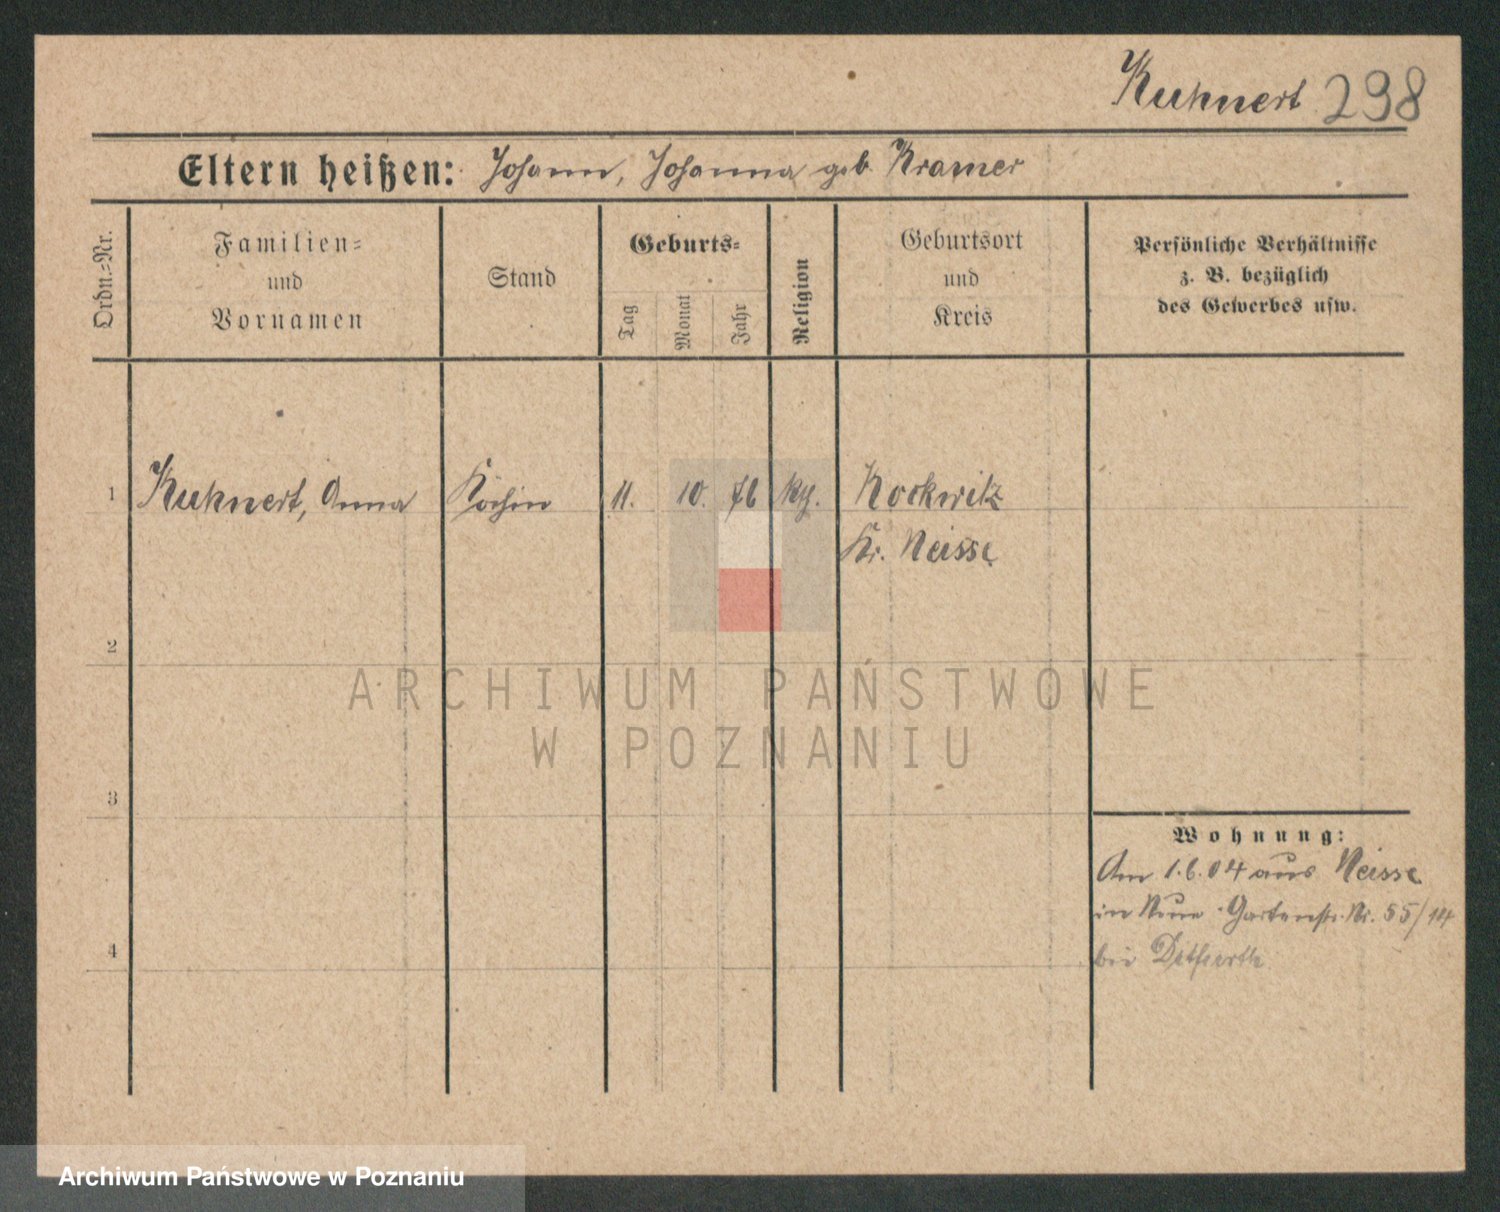 Kuhnert 298
Eltern heißen: Johann, Johanna geb. Kramer
Ordn.=Nr.
Familien=
und
Vornamen
Stand
Geburts=
Tag
Monat
Jahr
Religion
Geburtsort
und
Kreis
Persönliche Verhältnisse
z. B. bezüglich
des Gewerbes usw.
1 Kuhnert, Anna Köchin 11. 10. 76 kth. Kockwitz
Kr. Neisse
2
3
4
Wohnung:
Am 1.6.04 aus Neisse
in Neue Gartenstr. Nr. 55/14
bei
ARCHIWUM PAŃSTWOWE
W POZNANIU
Archiwum Państwowe w Poznaniu